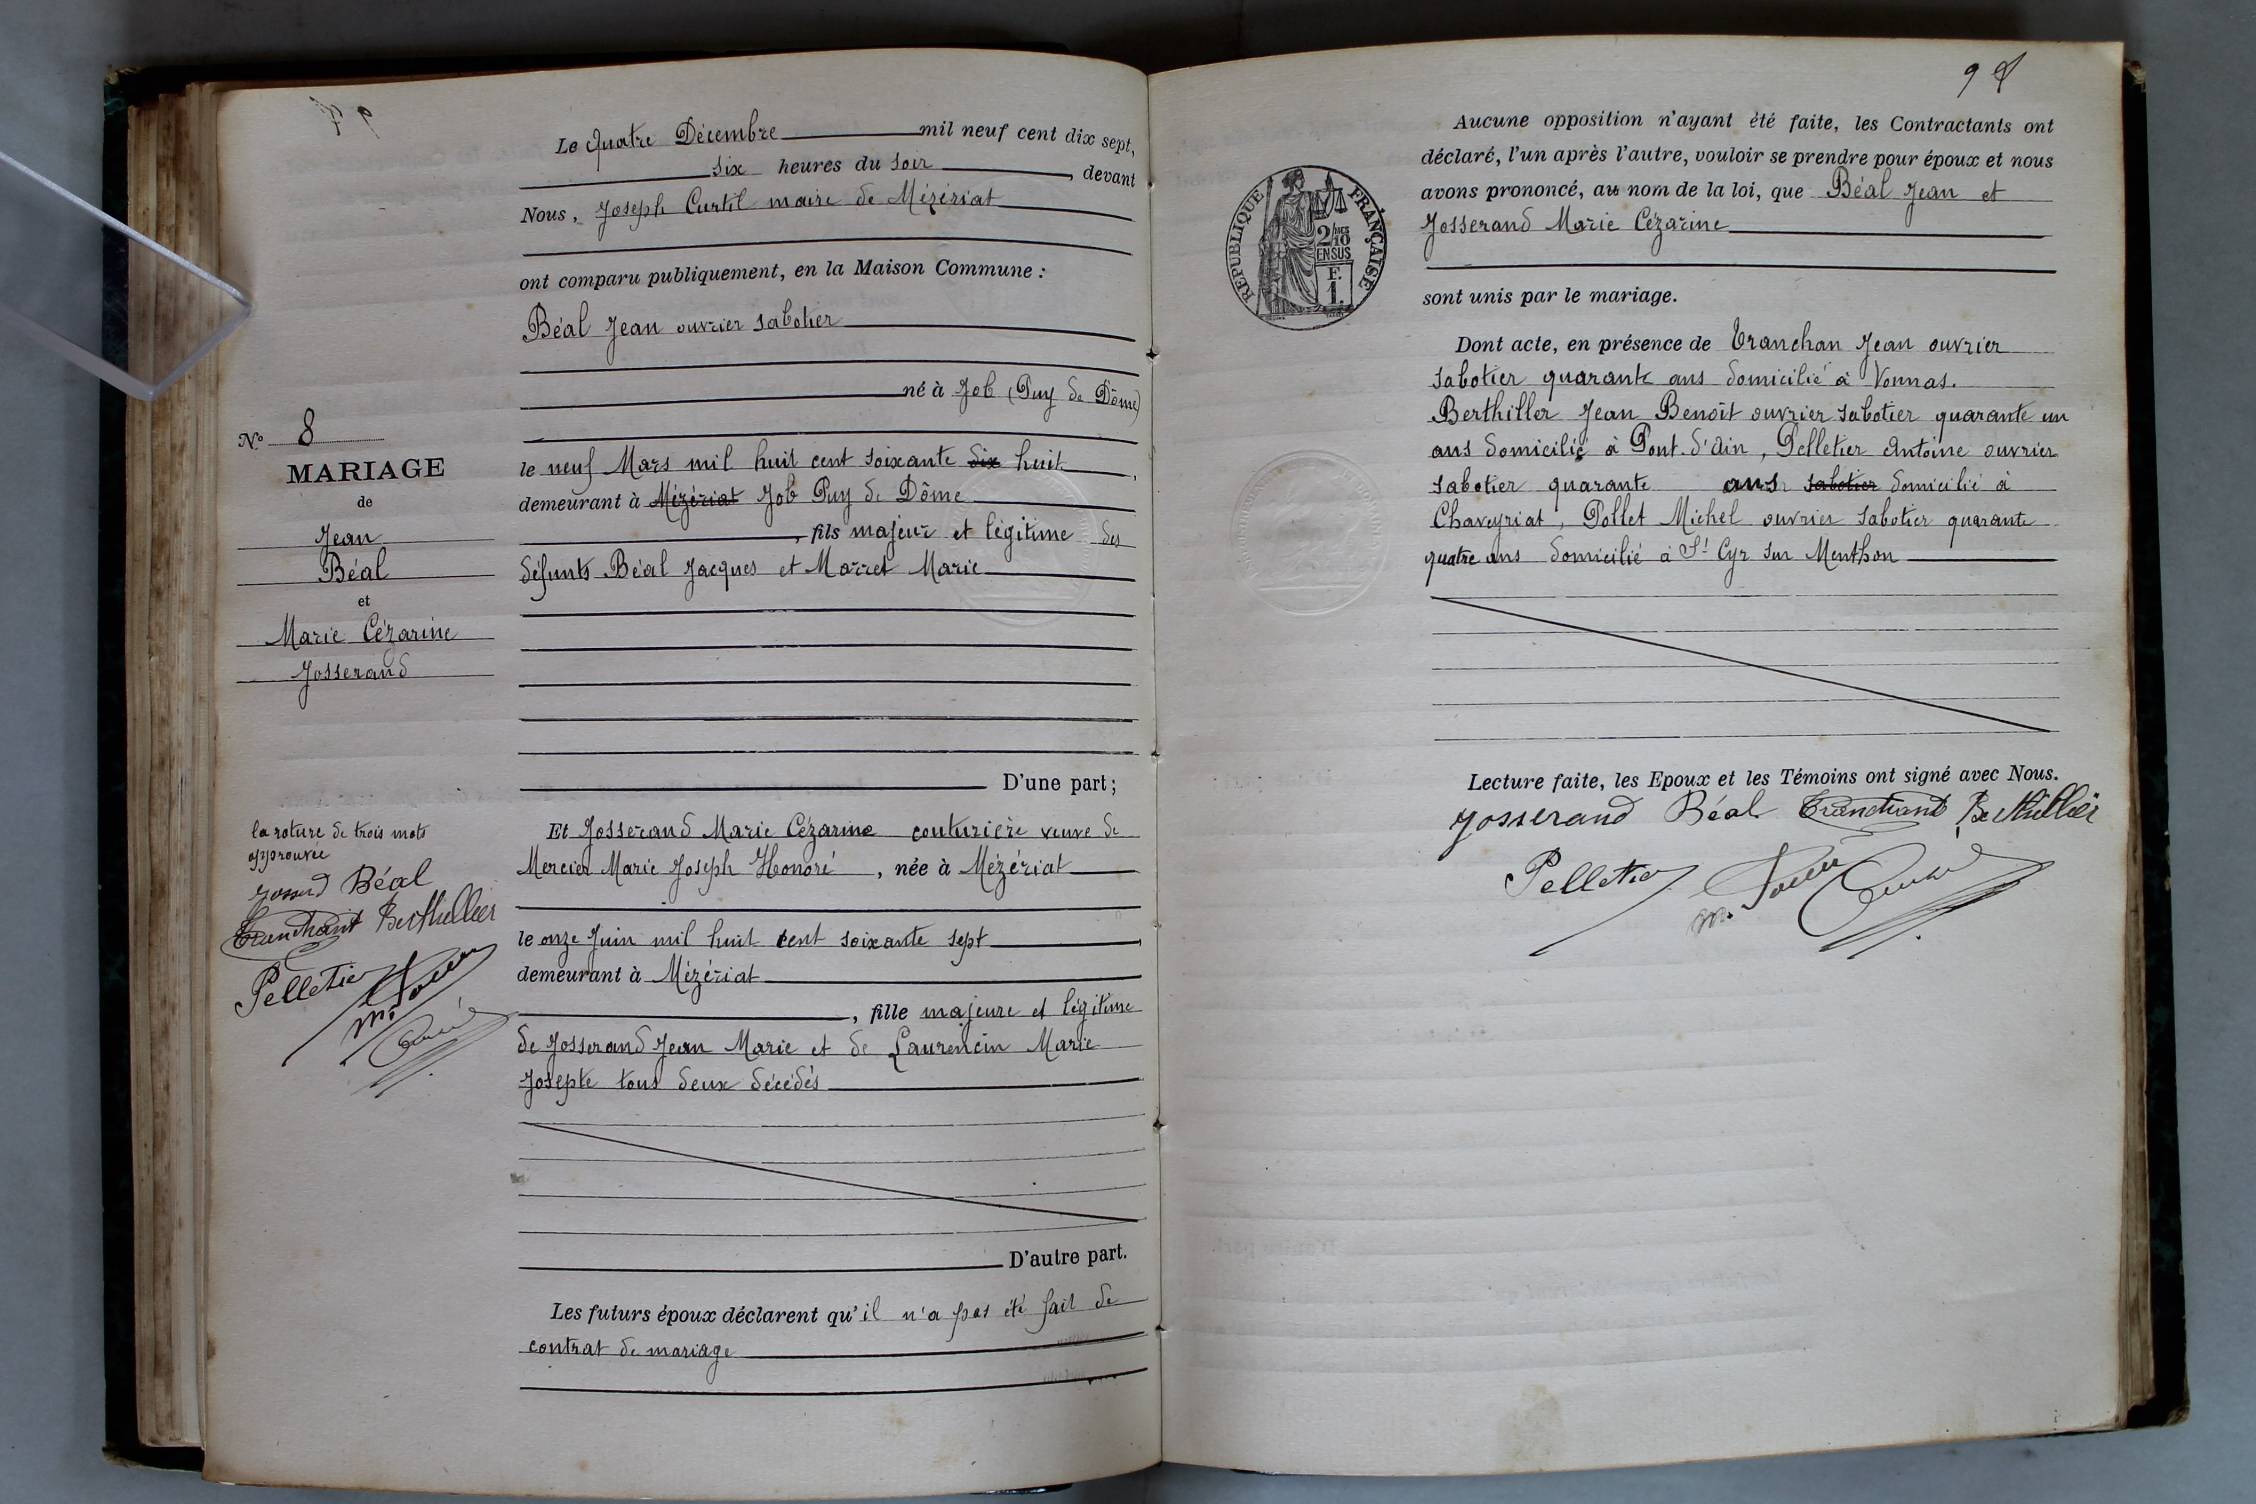 Le Quatre Décembre mil neuf cent dix sept,
six heures du soir, devant
Nous, Joseph Curtil maire de Mézériat
ont comparu publiquement, en la Maison Commune :
Béal Jean ouvrier sabotier
né à Job (Puy de Dôme)
le neuf Mars mil huit cent soixante dix huit,
demeurant à Mézériat Job Puy de Dôme
, fils majeur et légitime des
défunts Béal Jacques et Marret Marie
D'une part ;
N° 8
MARIAGE
de
Jean
Béal
et
Marie Cézarine
Josserand
la roture de trois mots
approuvée
Béal
Tranchant Berthillier
Pelletier
Et Josserand Marie Cézarine couturière veuve de
Mercier Marie Joseph Honoré, née à Mézériat
le onze Juin mil huit cent soixante sept,
demeurant à Mézériat
, fille majeure et légitime
de Josserand Jean Marie et de Laurencin Marie
Josepte tous deux décédés
D'autre part.
Les futurs époux déclarent qu'il n'a pas été fait de
contrat de mariage
98
RÉPUBLIQUE FRANÇAISE
2/10
EN SUS
F.
1.
Aucune opposition n'ayant été faite, les Contractants ont
déclaré, l'un après l'autre, vouloir se prendre pour époux et nous
avons prononcé, au nom de la loi, que Béal Jean et
Josserand Marie Cézarine
sont unis par le mariage.
Dont acte, en présence de Tranchan Jean ouvrier
sabotier quarante ans domicilié à Vonnas.
Berthiller Jean Benoît ouvrier sabotier quarante un
ans domicilié à Pont d'ain, Pelletier Antoine ouvrier
sabotier quarante ans sabotier domicilié à
Chaveyriat, Pollet Michel ouvrier sabotier quarante
quatre ans domicilié à St Cyr sur Menthon
Lecture faite, les Epoux et les Témoins ont signé avec Nous.
Josserand Béal Tranchant Berthillier
Pelletier